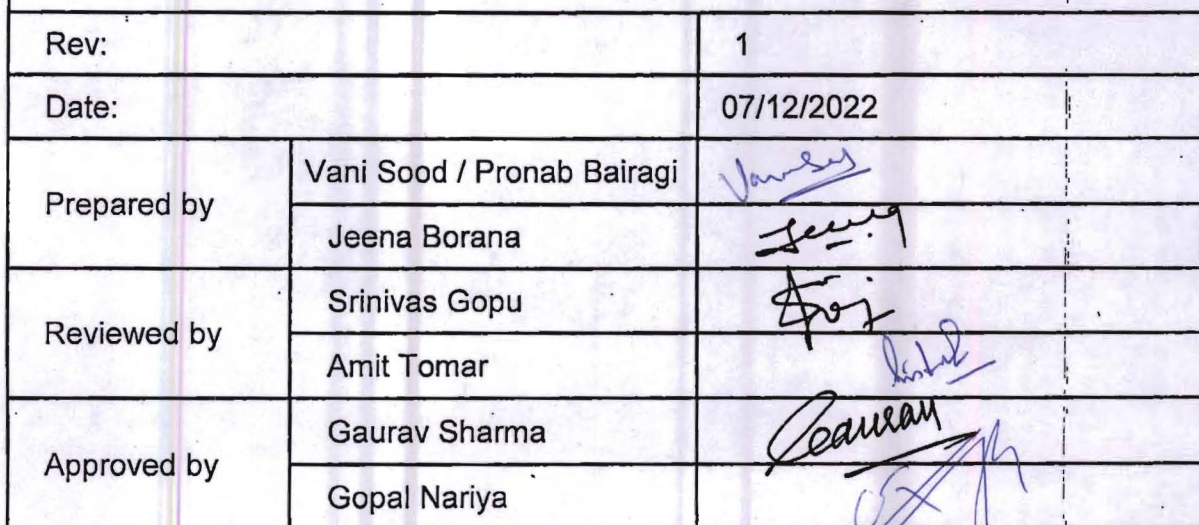 Rev: 1
Date: 07/12/2022
Prepared by
Vani Sood / Pronab Bairagi
Jeena Borana
Reviewed by
Srinivas Gopu
Amit Tomar
Approved by
Gaurav Sharma
Gopal Nariya